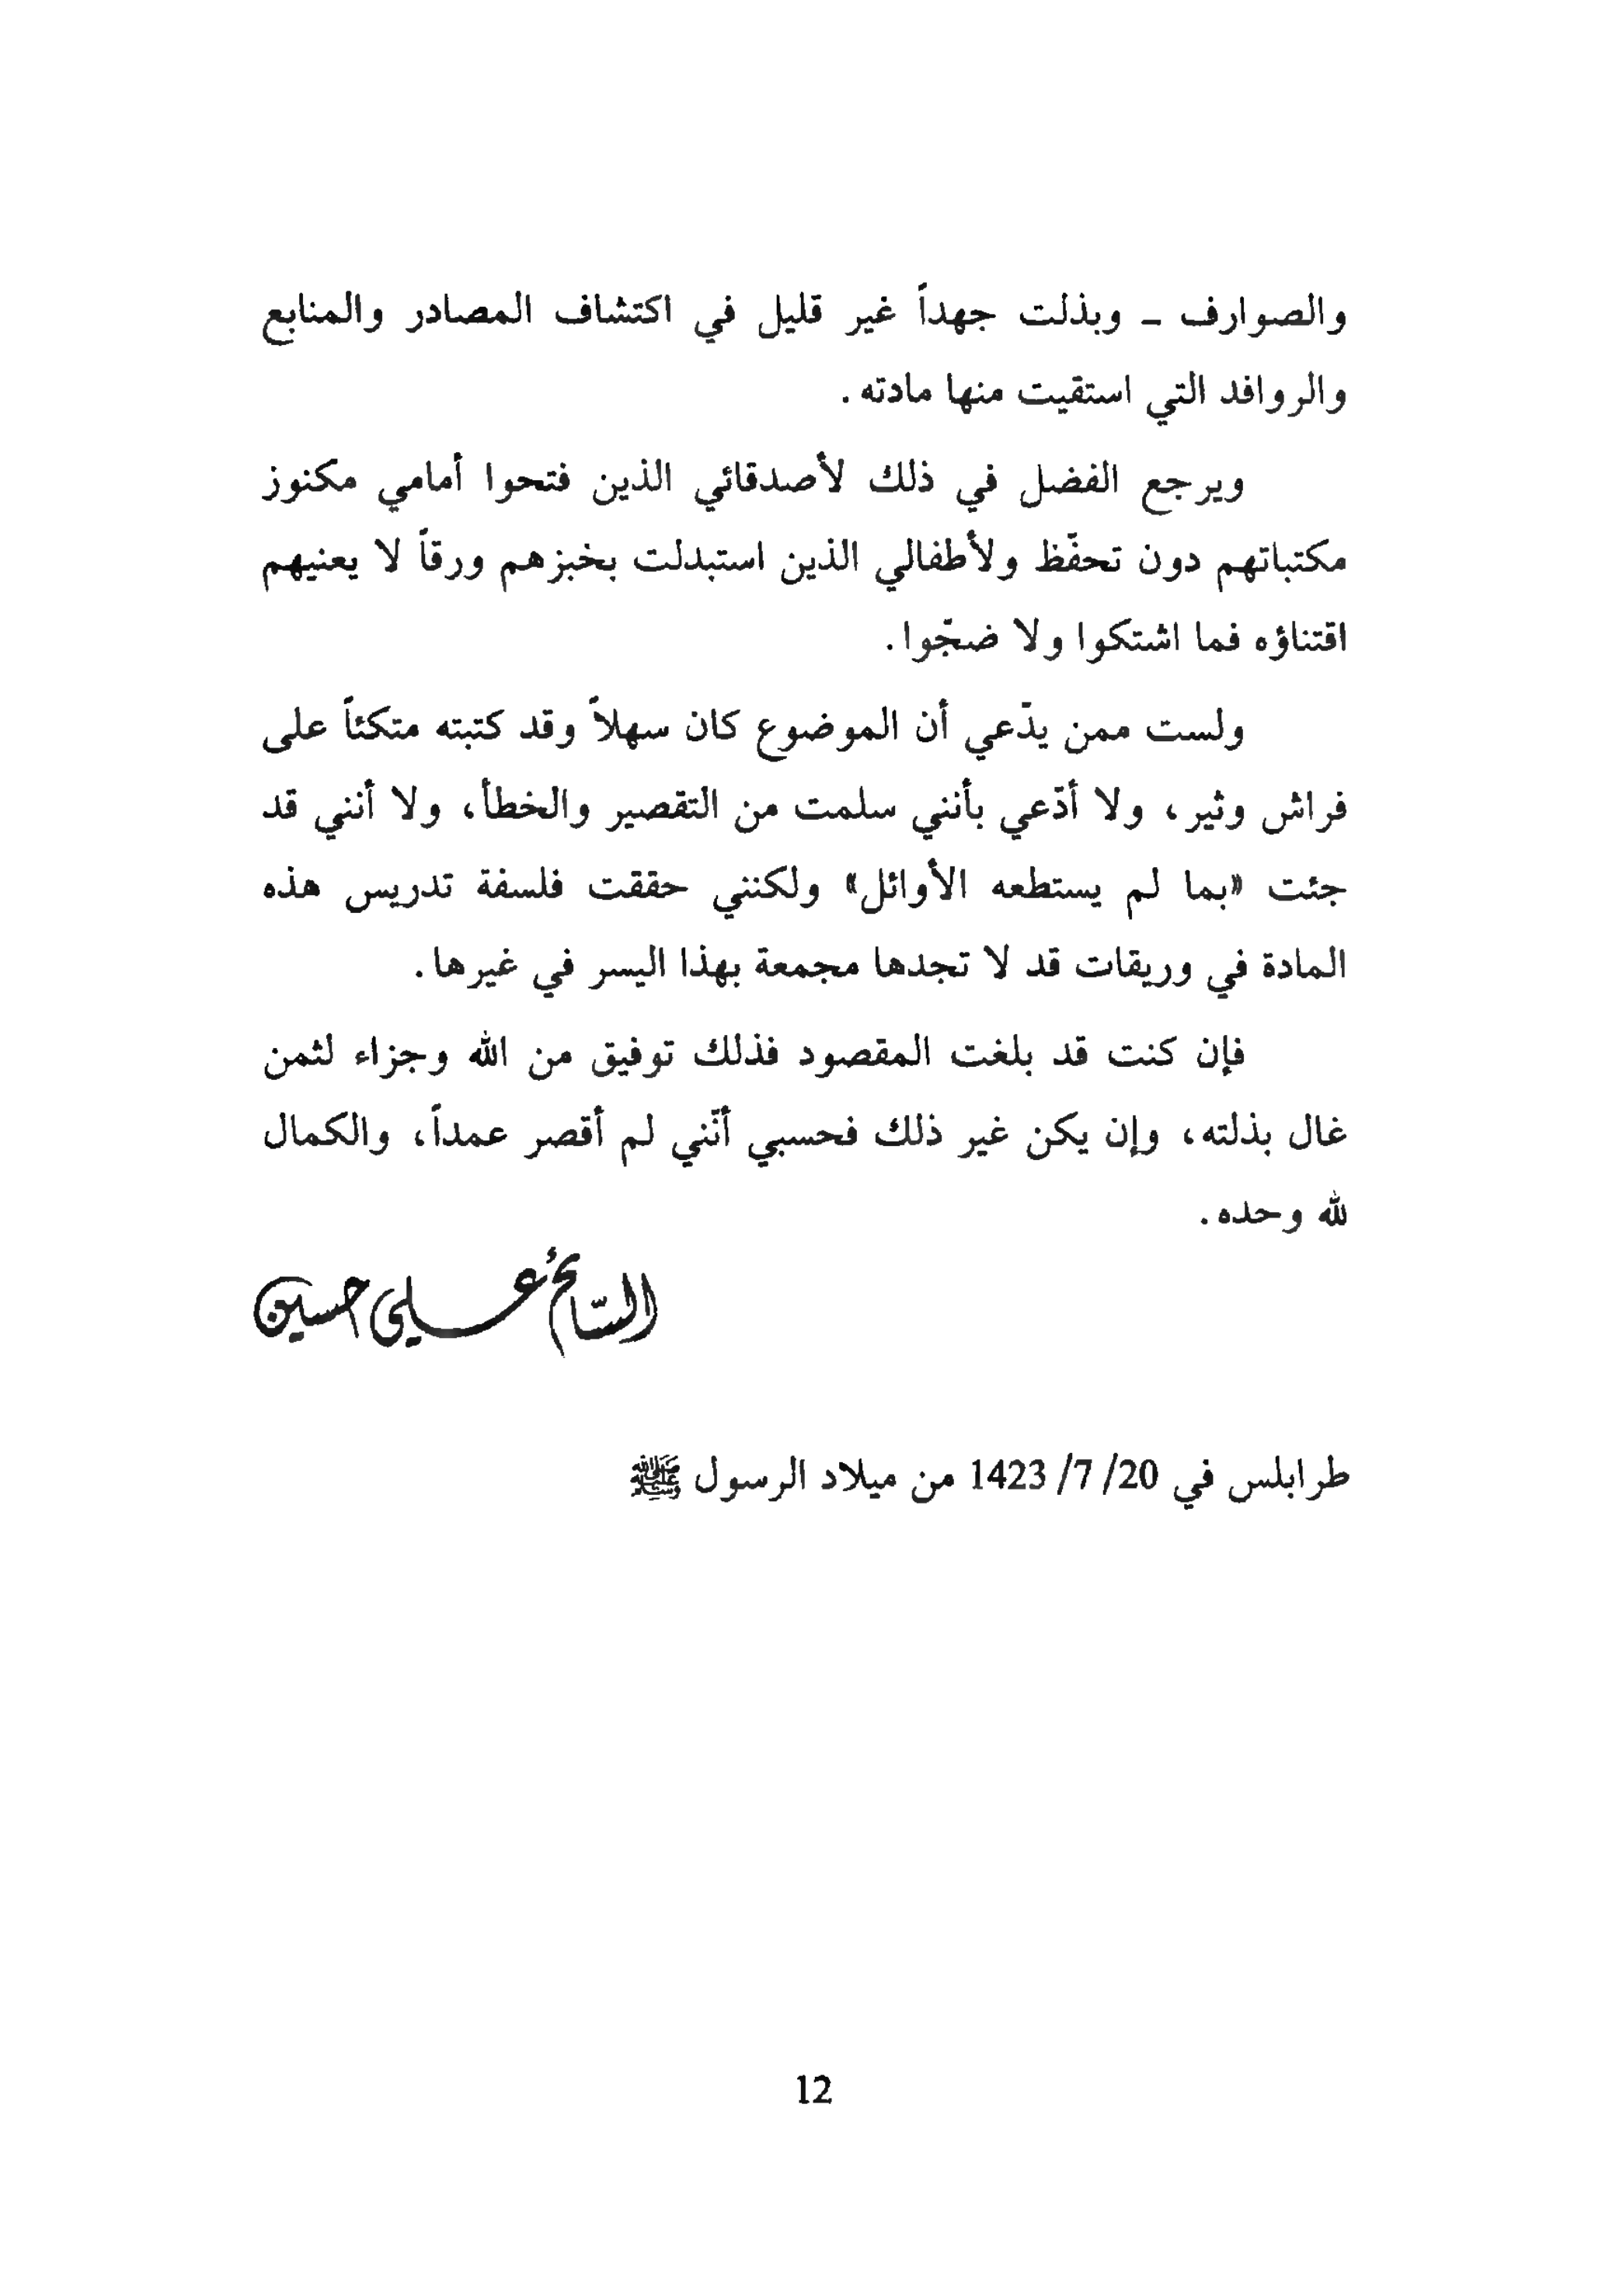 والصوارف ـ وبذلت جهداً غير قليل في اكتشاف المصادر والمنابع
والروافد التي استقيت منها مادته .
ويرجع الفضل في ذلك لأصدقائي الذين فتحوا أمامي مكنوز
مكتباتهم دون تحفّظ ولأطفالي الذين استبدلت بخبزهم ورقاً لا يعنيهم
اقتناؤه فما اشتكوا ولا ضجّوا .
ولست ممن يدّعي أن الموضوع كان سهلاً وقد كتبته متكئاً على
فراش وثير ، ولا أدّعي بأنني سلمت من التقصير والخطأ ، ولا أنني قد
جئت «بما لم يستطعه الأوائل» ولكنني حققت فلسفة تدريس هذه
المادة في وريقات قد لا تجدها مجمعة بهذا اليسر في غيرها .
فإن كنت قد بلغت المقصود فذلك توفيق من الله وجزاء لثمن
غال بذلته ، وإن يكن غير ذلك فحسبي أنّني لم أقصر عمداً ، والكمال
لله وحده .
السّائح عـلي حسين
طرابلس في 20/ 7/ 1423 من ميلاد الرسول ﷺ
12